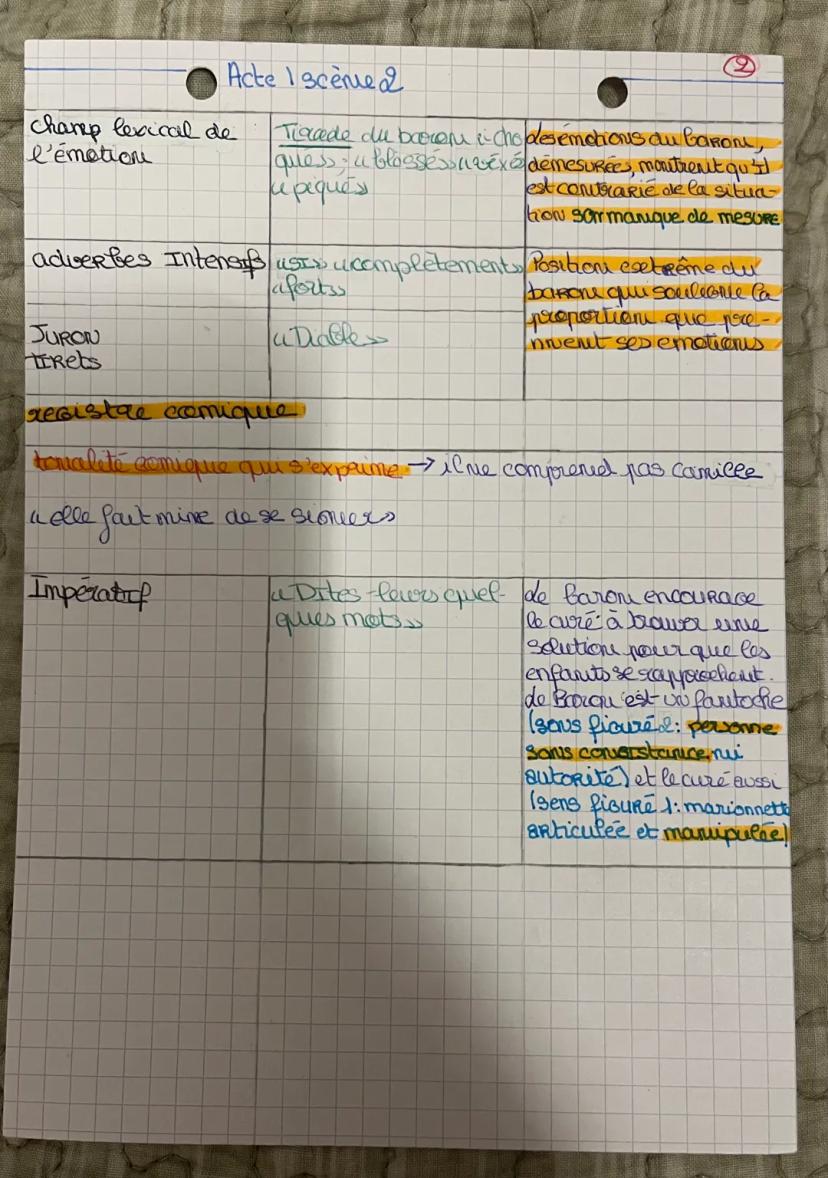 2
Acte 1 scène 2
champ lexical de
l'émotion
Tirade du baron : « cho
qué » ; « blessé » « vexé
« piqué »
des émotions du baron,
démesurées, montrent qu'il
est contrarié de la situa-
tion son manque de mesure
adverbes Intensifs
« SI » « complètement »
« fort »
Position extrême du
baron qui souligne la
proportion que pre-
nnent ses émotions
JURON
TIRets
« Diable »
registre comique
tonalité comique qui s'exprime → il ne comprend pas Camille
« elle fait mine de se signer »
Impératif
« Dites-leurs quel-
ques mots »
de baron encourage
le curé à trouver une
solution pour que les
enfants se rapprochent.
de Baron est un fantoche
(sens figuré 2 : personne
sans consistance, ni
autorité) et le curé aussi
(sens figuré 1 : marionnette
articulée et manipulée)